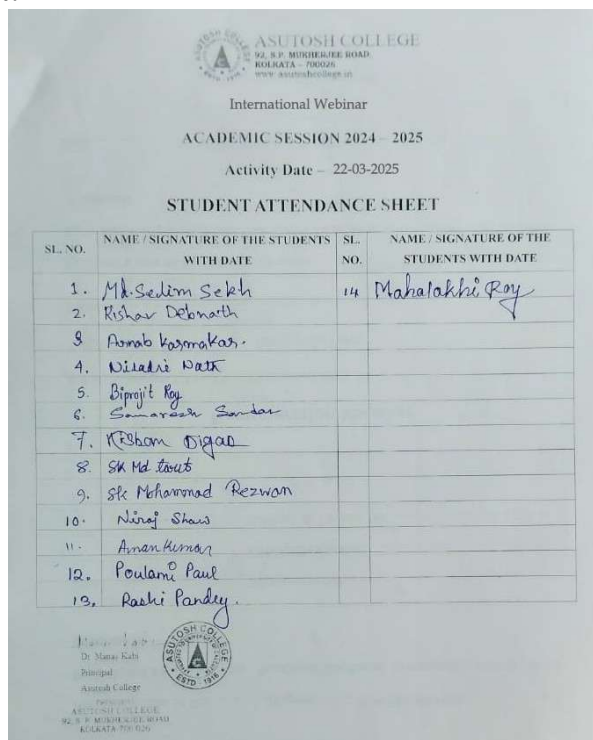 ASUTOSH COLLEGE
92, S.P. MUKHERJEE ROAD
KOLKATA – 700026
www.asutoshcollege.in
International Webinar
ACADEMIC SESSION 2024 – 2025
Activity Date – 22-03-2025
STUDENT ATTENDANCE SHEET
SL. NO. NAME / SIGNATURE OF THE STUDENTS WITH DATE SL. NO. NAME / SIGNATURE OF THE STUDENTS WITH DATE
1. Md. Selim Sekh 14 Mahalakhi Roy
2. Rishav Debnath
3 Arnab Karmakar.
4. Niladri Nath
5. Biprojit Roy
6. Samaresh Sardar
7. Kisham Digar
8. SK Md
9. Sk Mohammad Rezwan
10. Niraj Shaw
11. Aman Kumar
12. Poulami Paul
13. Rashi Pandey.
ASUTOSH COLLEGE
ESTD - 1916
Dr. Manas Kabi
Principal
Asutosh College
ASUTOSH COLLEGE
92, S. P. MUKHERJEE ROAD
KOLKATA-700 026